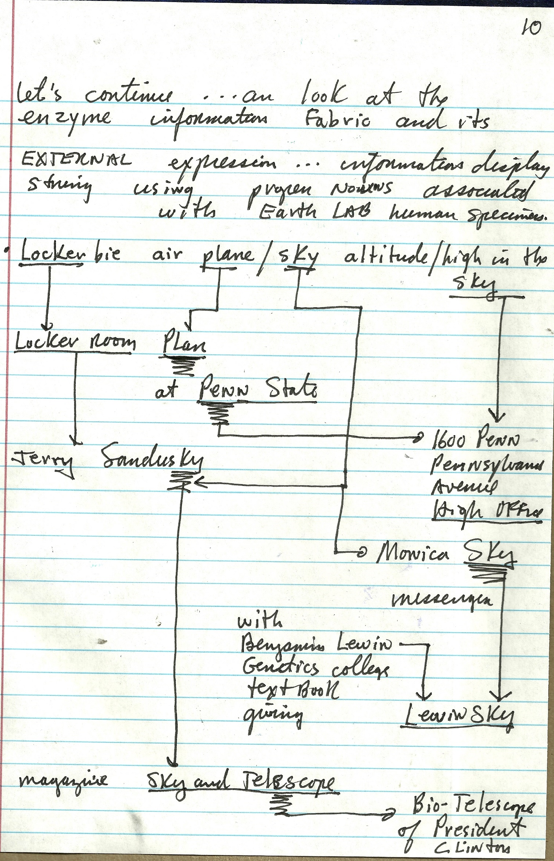 10
Let's continue ... an look at the
enzyme information Fabric and its
EXTERNAL expression ... information display
string using proper Nouns associated
with Earth LAB human specimens.
• Lockerbie air plane / sky altitude / high in the
sky
Locker room Plan
at Penn State
1600 Penn
Jerry Sandusky Pennsylvania
Avenue
High Office
Monica Sky
messenger
with
Benjamin Lewin
Genetics college
text Book
giving LewinSky
magazine Sky and Telescope
Bio-Telescope
of President
Clinton